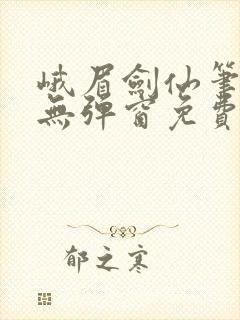 峨眉劍仙筆
無彈窗免費
郁之寒